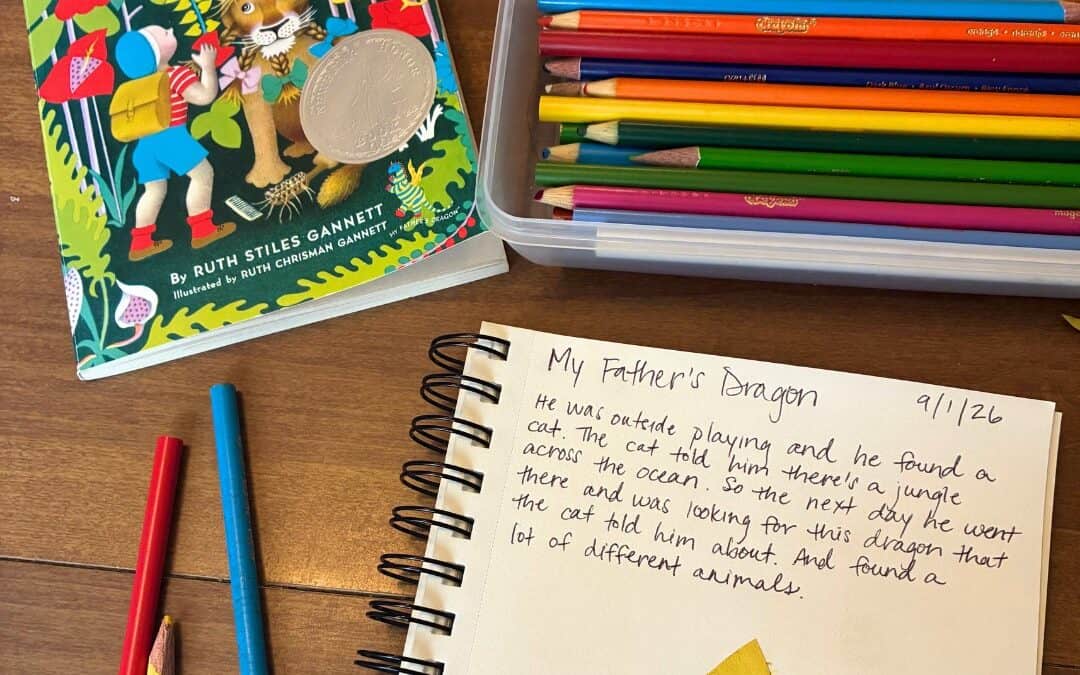 By RUTH STILES GANNETT
Illustrated by RUTH CHRISMAN GANNETT
MY FATHER'S DRAGON
HONOR
Crayola
orange
Dark Blue
Crayola
My Father's Dragon
9/1/26
He was outside playing and he found a
cat. The cat told him there's a jungle
across the ocean. So the next day he went
there and was looking for this dragon that
the cat told him about. And found a
lot of different animals.